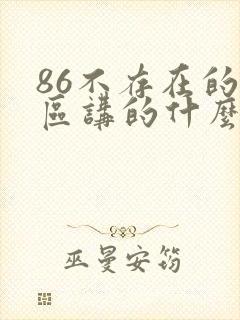 86不存在的
區講的什麼
巫曼安筠